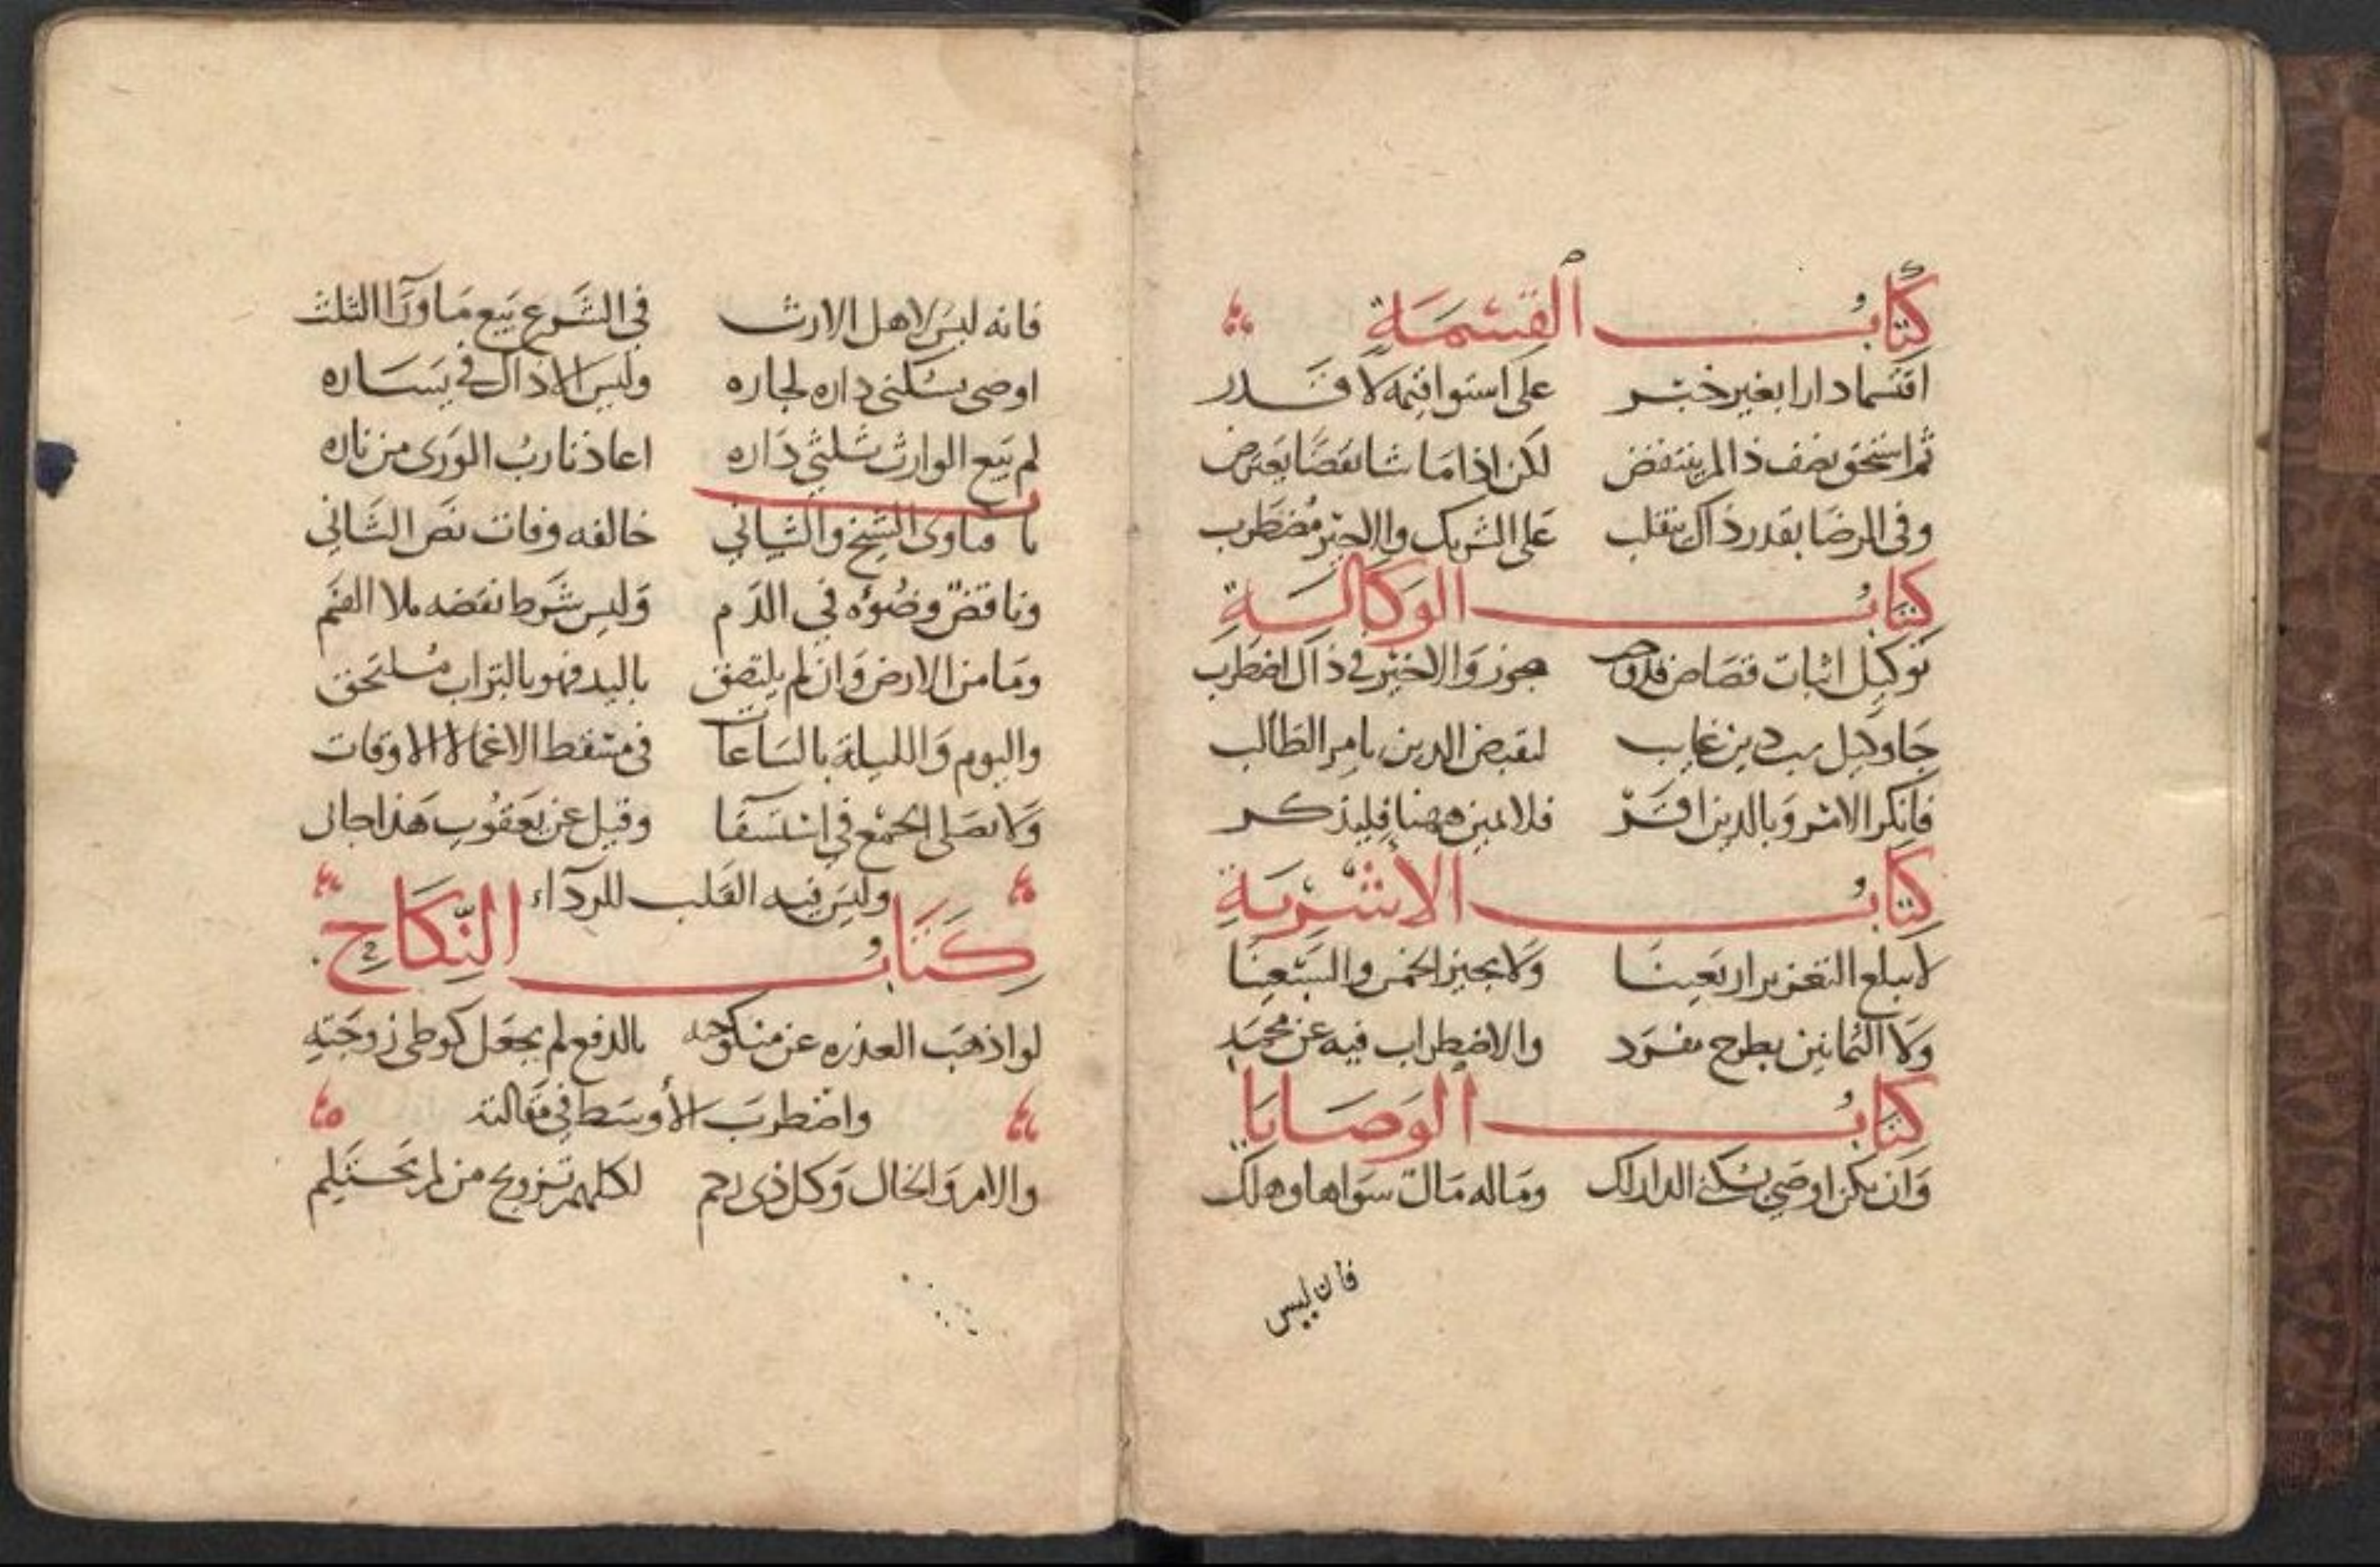 كتاب القسمة
اقتسما دارا بغير خبر على استوا قيمة لا قدر
ثم استحق نصف ذا لم ينتقض لكن اذا ما شا نقصا يعترض
وفى الرضا بقدر ذاك ينقلب على الشريك والاخير مضطرب
كتاب الوكالة
توكيل اثبات قصاص جوز والاخير في ذاك اضطرب
جا وكيل غايب لقبض الدين بامر الطالب
فانكر الامر وبالدين اقر فلا يمين ههنا فليذكر
كتاب الاشربة
لا يبلغ التعزير اربعينا ولا يجيز الخمس والسبعينا
ولا الثمانين بطرح مفرد والاضطراب فيه عن محمد
كتاب الوصايا
وان يكن اوصى بسكنى الدار لك وماله مال سواها وهلك
فان ليس
فانه ليس لاهل الارث في الشرع بيع ما ورآ الثلث
اوصى بسكنى داره لجاره وليس الا ذاك في يساره
لم يبع الوارث ثلثي داره اعاذنا رب الورى من ناره
فتاوى الشيخ والشيباني خالفه وفات نص الثاني
وناقض وضوءه في الدم وليس شرط نقضه ملا الفم
وما من الارض وان لم يلتصق باليد فهو بالتراب ملتحق
واليوم والليلة بالساعات في مسقط الاغما لا الاوقات
ولا نصلى الجمع في استسقا وقيل عن يعقوب هذا جاى
وليس فيه القلب للردآء
كتاب النكاح
لو اذهب العذره عن منكوحه بالدفع لم يجعل كوطى زوجته
واضطرب الأوسط في مقالته
والام والخال وكل ذى رحم لكلهم تزويج من لم يحتلم